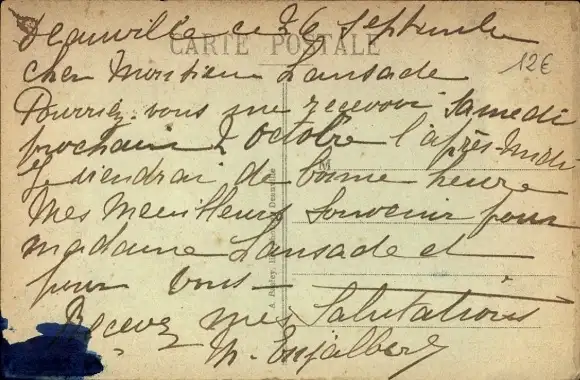 Deauville ce 26 septembre
CARTE POSTALE
12€
Cher Monsieur Lansade
Pourriez-vous me recevoir samedi
prochain 2 octobre l'après-midi
Je viendrai de bonne heure
Mes meilleurs souvenirs pour
madame Lansade et
pour vous
Recevez mes salutations
M. Enjalbert
M
Deauville